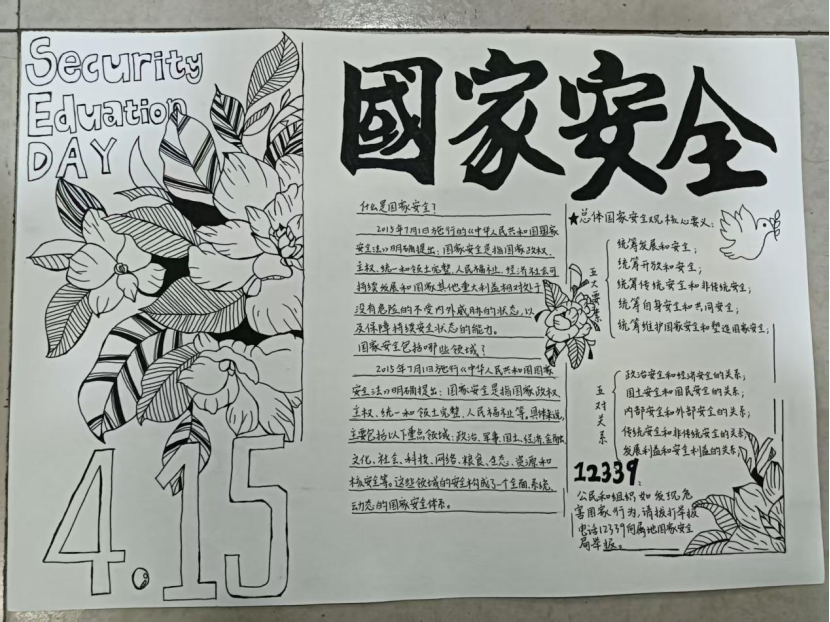 Security
Eduation
DAY
4.15
國家安全
什么是国家安全？
2015年7月1日施行的《中华人民共和国国家
安全法》明确提出：国家安全是指国家政权、
主权、统一和领土完整、人民福祉、经济社会可
持续发展和国家其他重大利益相对处于
没有危险的不受内外威胁的状态，以
及保障持续安全状态的能力。
国家安全包括哪些领域？
2015年7月1日施行《中华人民共和国国家
安全法》明确提出：国家安全是指国家政权、
主权、统一和领土完整、人民福祉等，具体来说，
主要包括以下重点领域：政治、军事、国土、经济、金融、
文化、社会、科技、网络、粮食、生态、资源和
核安全等。这些领域的安全构成了一个全面、系统、
动态的国家安全体系。
★总体国家安全观核心要义：
五大要素
统筹发展和安全；
统筹开放和安全；
统筹传统安全和非传统安全；
统筹自身安全和共同安全；
统筹维护国家安全和塑造国家安全；
五对关系
政治安全和经济安全的关系；
国土安全和国民安全的关系；
内部安全和外部安全的关系；
传统安全和非传统安全的关系；
发展利益和安全利益的关系；
12339：
公民和组织如发现危
害国家行为，请拨打举报
电话12339向属地国家安全
局举报。